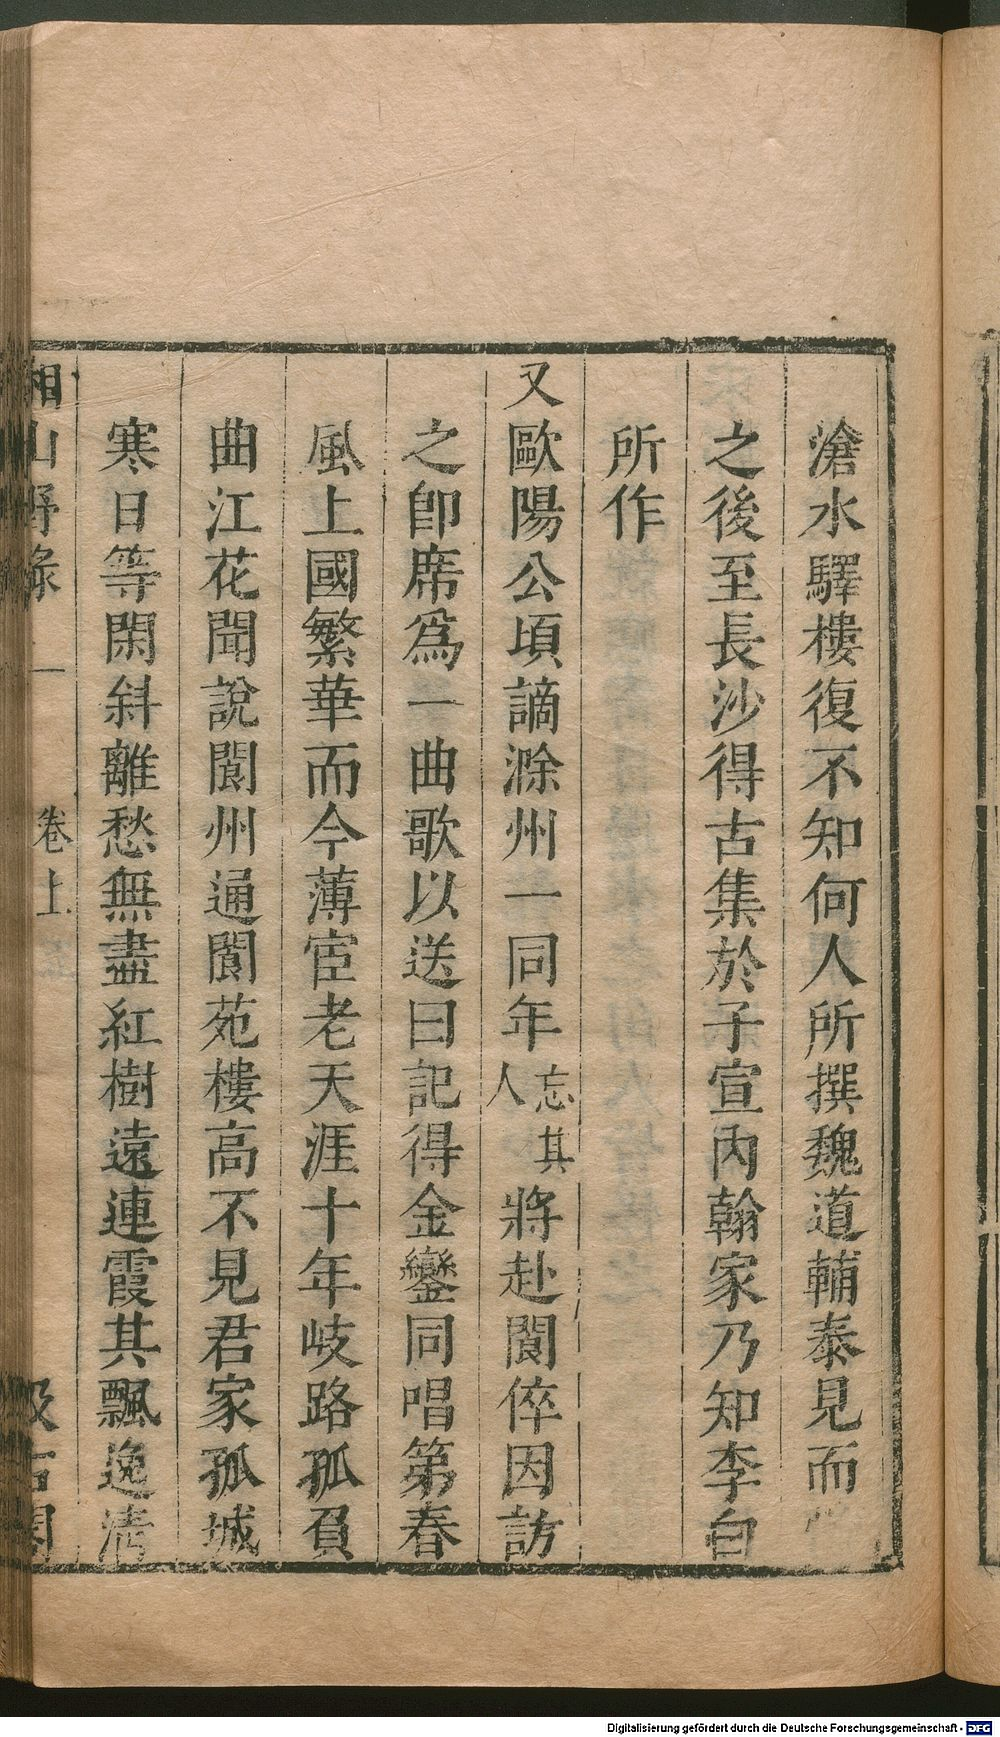 滄水驛樓復不知何人所撰魏道輔泰見而
之後至長沙得古集於子宣內翰家乃知李白
所作
又歐陽公頃謫滁州一同年忘其人將赴閬倅因訪
之卽席爲一曲歌以送曰記得金鑾同唱第春
風上國繁華而今薄宦老天涯十年岐路孤負
曲江花聞說閬州通閬苑樓高不見君家孤城
寒日等閑斜離愁無盡紅樹遠連霞其飄逸清
湘山野錄 卷上
汲古閣
Digitalisierung gefördert durch die Deutsche Forschungsgemeinschaft - DFG